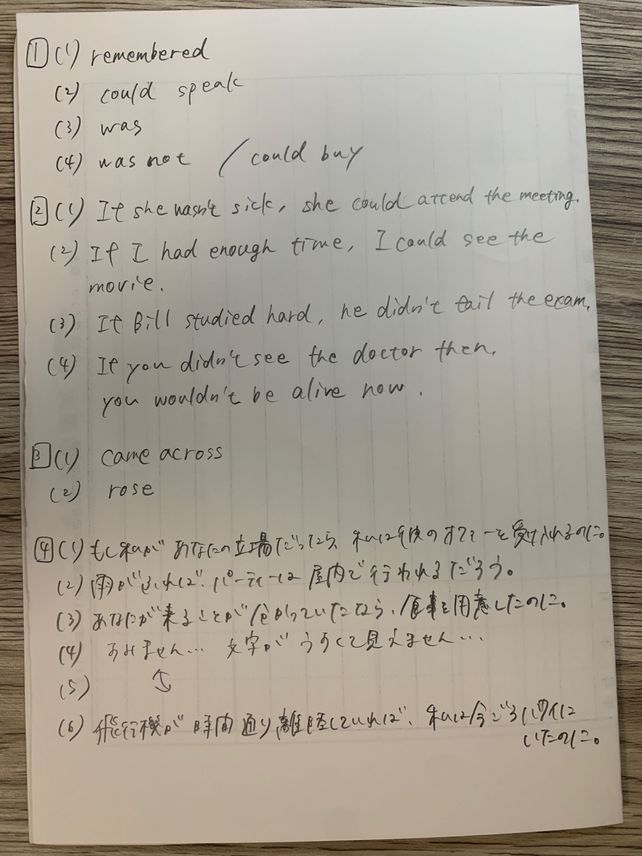 1 (1) remembered
(2) could speak
(3) was
(4) was not / could buy
2 (1) If she wasn't sick, she could attend the meeting.
(2) If I had enough time, I could see the
movie.
(3) If Bill studied hard, he didn't fail the exam.
(4) If you didn't see the doctor then,
you wouldn't be alive now.
3 (1) came across
(2) rose
4 (1) もし私があなたの立場だったら、私は彼のオファーを受け入れるのに。
(2) 雨がふれば、パーティーは屋内で行われるだろう。
(3) あなたが来ることが分かっていたなら、食事を用意したのに。
(4) すみません… 文字がうすくて見えません…
(5)
(6) 飛行機が時間通り離陸していれば、私は今ごろハワイに
いたのに。